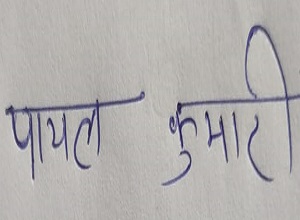 पायल कुमारी